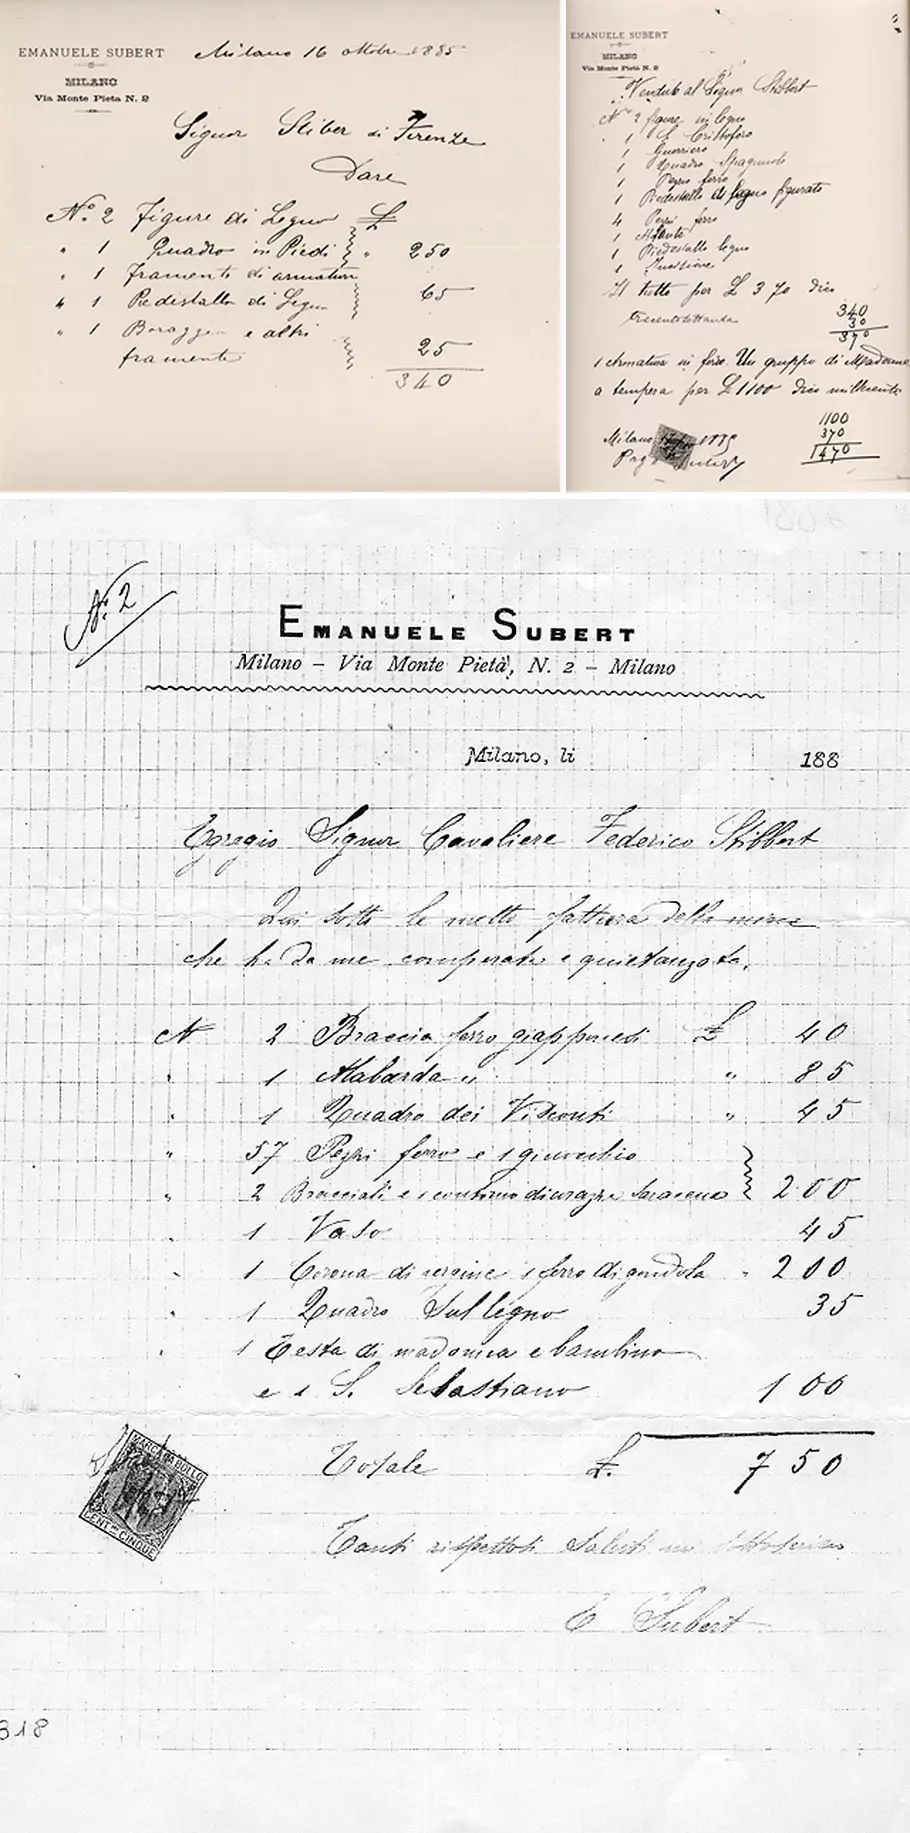 EMANUELE SUBERT
MILANO
Via Monte Pietà N. 2
Milano 16 ottobre 1885
Signor Stiber di Firenze
Dare
No. 2 Figure di Legno £
" 1 Quadro in Piedi " 250
" 1 framenti di armatura
" 1 Piedestallo di Legno 65
" 1 e altri
framenti 25
340
EMANUELE SUBERT
MILANO
Via Monte Pietà N. 2
Venduto al Signor Stibbert
No 2 figure in legno
1 S. Cristoforo
1 Guerriero
1 Quadro Spagnuolo
1 Pezzo ferro
1 Piedestallo di legno figurato
4 Pezzi ferro
1
1 Piedestallo legno
1
Il tutto per £ 370 dico
340
30
370
1 armatura in ferro. Un gruppo di Madonne
a tempera per £ 1100 dico
1100
370
1470
Milano
Subert
N. 2
EMANUELE SUBERT
Milano – Via Monte Pietà, N. 2 – Milano
Milano, li 188
Egregio Signor Cavaliere Federico Stibbert
Qui sotto le metto fattura della merce
che ha da me comperata e quietanzata.
N 2 Braccia ferro giapponesi £ 40
" 1 Alabarda " " 85
" 1 Quadro dei Visconti " 45
" 57 Pezzi ferro e 1 ginocchio
" 2 Bracciali e 1 saraceno 200
" 1 Vaso 45
" 1 Corona di vergine 1 ferro di gondola " 200
" 1 Quadro Sul legno 35
" 1 Testa di madonna e bambino
e 1 S. Sebastiano 100
MARCA DA BOLLO
CENT. CINQUE
Totale £. 750
Tanti rispettosi Saluti mi
E Subert
318